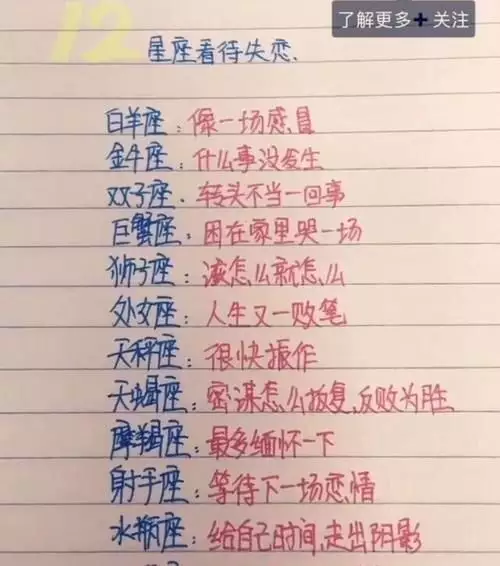 了解更多+ 关注
12
星座看待失恋.
白羊座：像一场感冒
金牛座：什么事没发生
双子座．转头不当一回事
巨蟹座：困在家里哭一场
狮子座：该怎么就怎么
处女座：人生又一败笔
天秤座：很快振作
天蝎座：密谋怎么报复,反败为胜
摩羯座：最多缅怀一下
射手座：等待下一场恋情
水瓶座：给自己时间,走出阴影